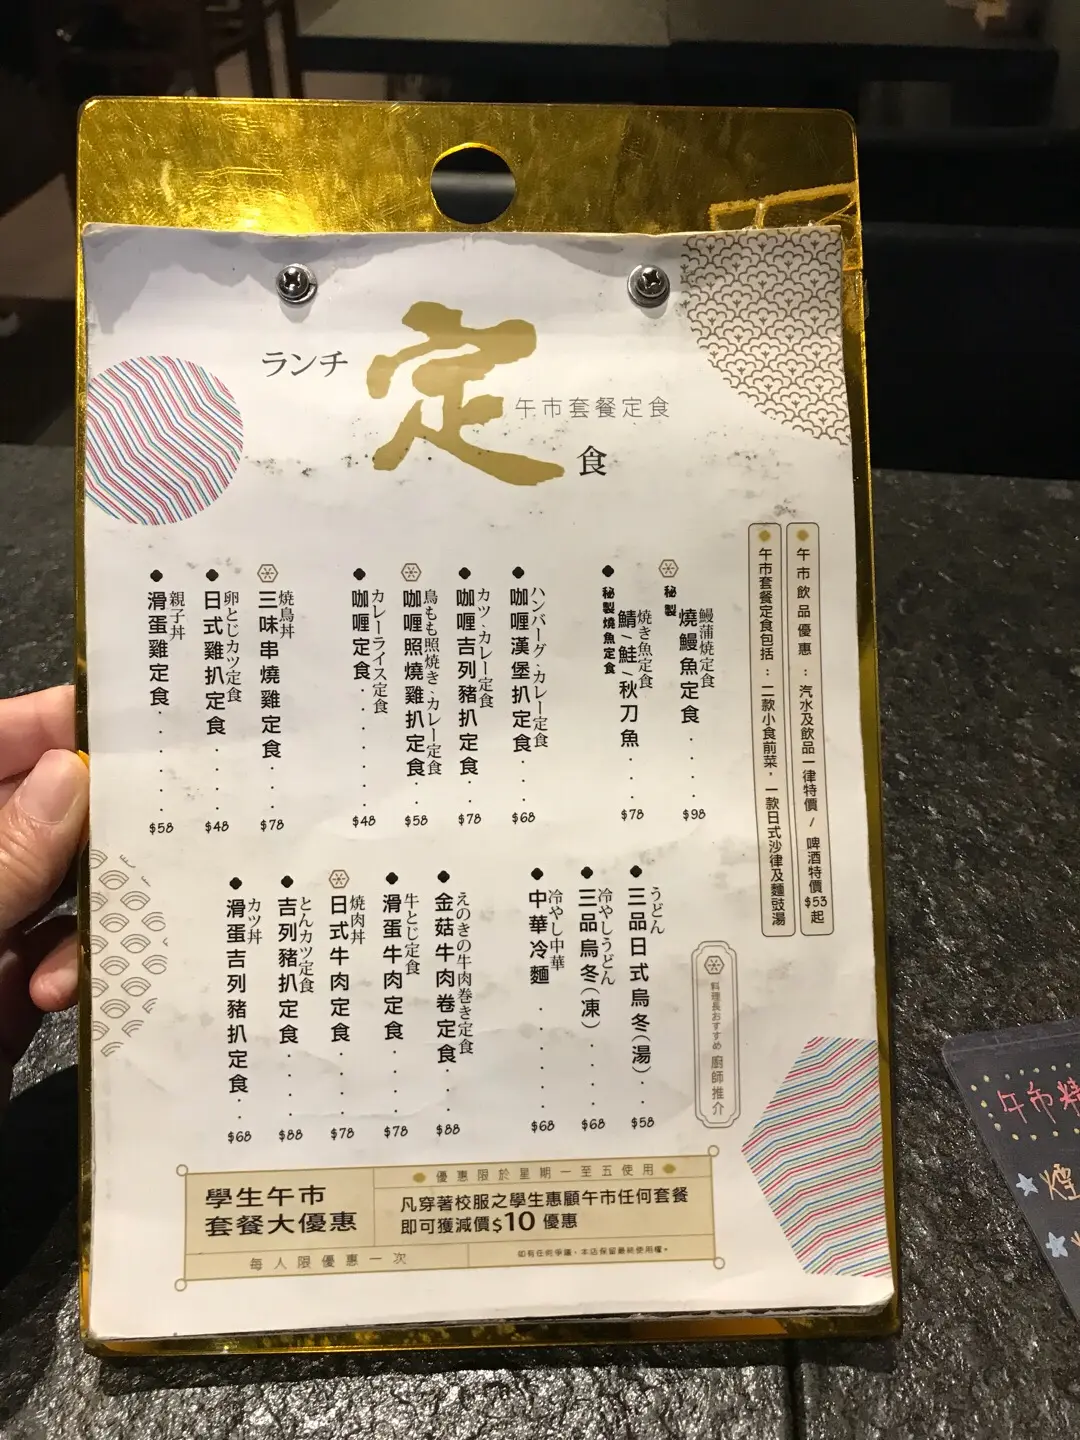 ランチ
定
午市套餐定食
食
午市飲品優惠 : 汽水及飲品一律特價 / 啤酒特價$53起
午市套餐定食包括 : 二款小食前菜，一款日式沙律及麵豉湯
鰻蒲焼定食
秘製
燒鰻魚定食 $98
焼き魚定食
秘製燒魚定食
鯖/鮭/秋刀魚 $78
ハンバーグ、カレー定食
咖喱漢堡扒定食 $68
カツ、カレー定食
咖喱吉列豬扒定食 $78
鳥もも照焼き、カレー定食
咖喱照燒雞扒定食 $58
カレーライス定食
咖喱定食 $48
焼鳥丼
三味串燒雞定食 $78
卵とじカツ定食
日式雞扒定食 $48
親子丼
滑蛋雞定食 $58
うどん
三品日式烏冬(湯) $58
冷やしうどん
三品烏冬(凍) $68
冷やし中華
中華冷麵 $68
えのきの牛肉巻き定食
金菇牛肉卷定食 $88
牛とじ定食
滑蛋牛肉定食 $78
焼肉丼
日式牛肉定食 $78
とんカツ定食
吉列豬扒定食 $88
カツ丼
滑蛋吉列豬扒定食 $68
料理長おすすめ 廚師推介
學生午市
套餐大優惠
優惠限於星期一至五使用
凡穿著校服之學生惠顧午市任何套餐
即可獲減價$10優惠
每人限優惠一次
如有任何爭議，本店保留最終使用權。
午市精